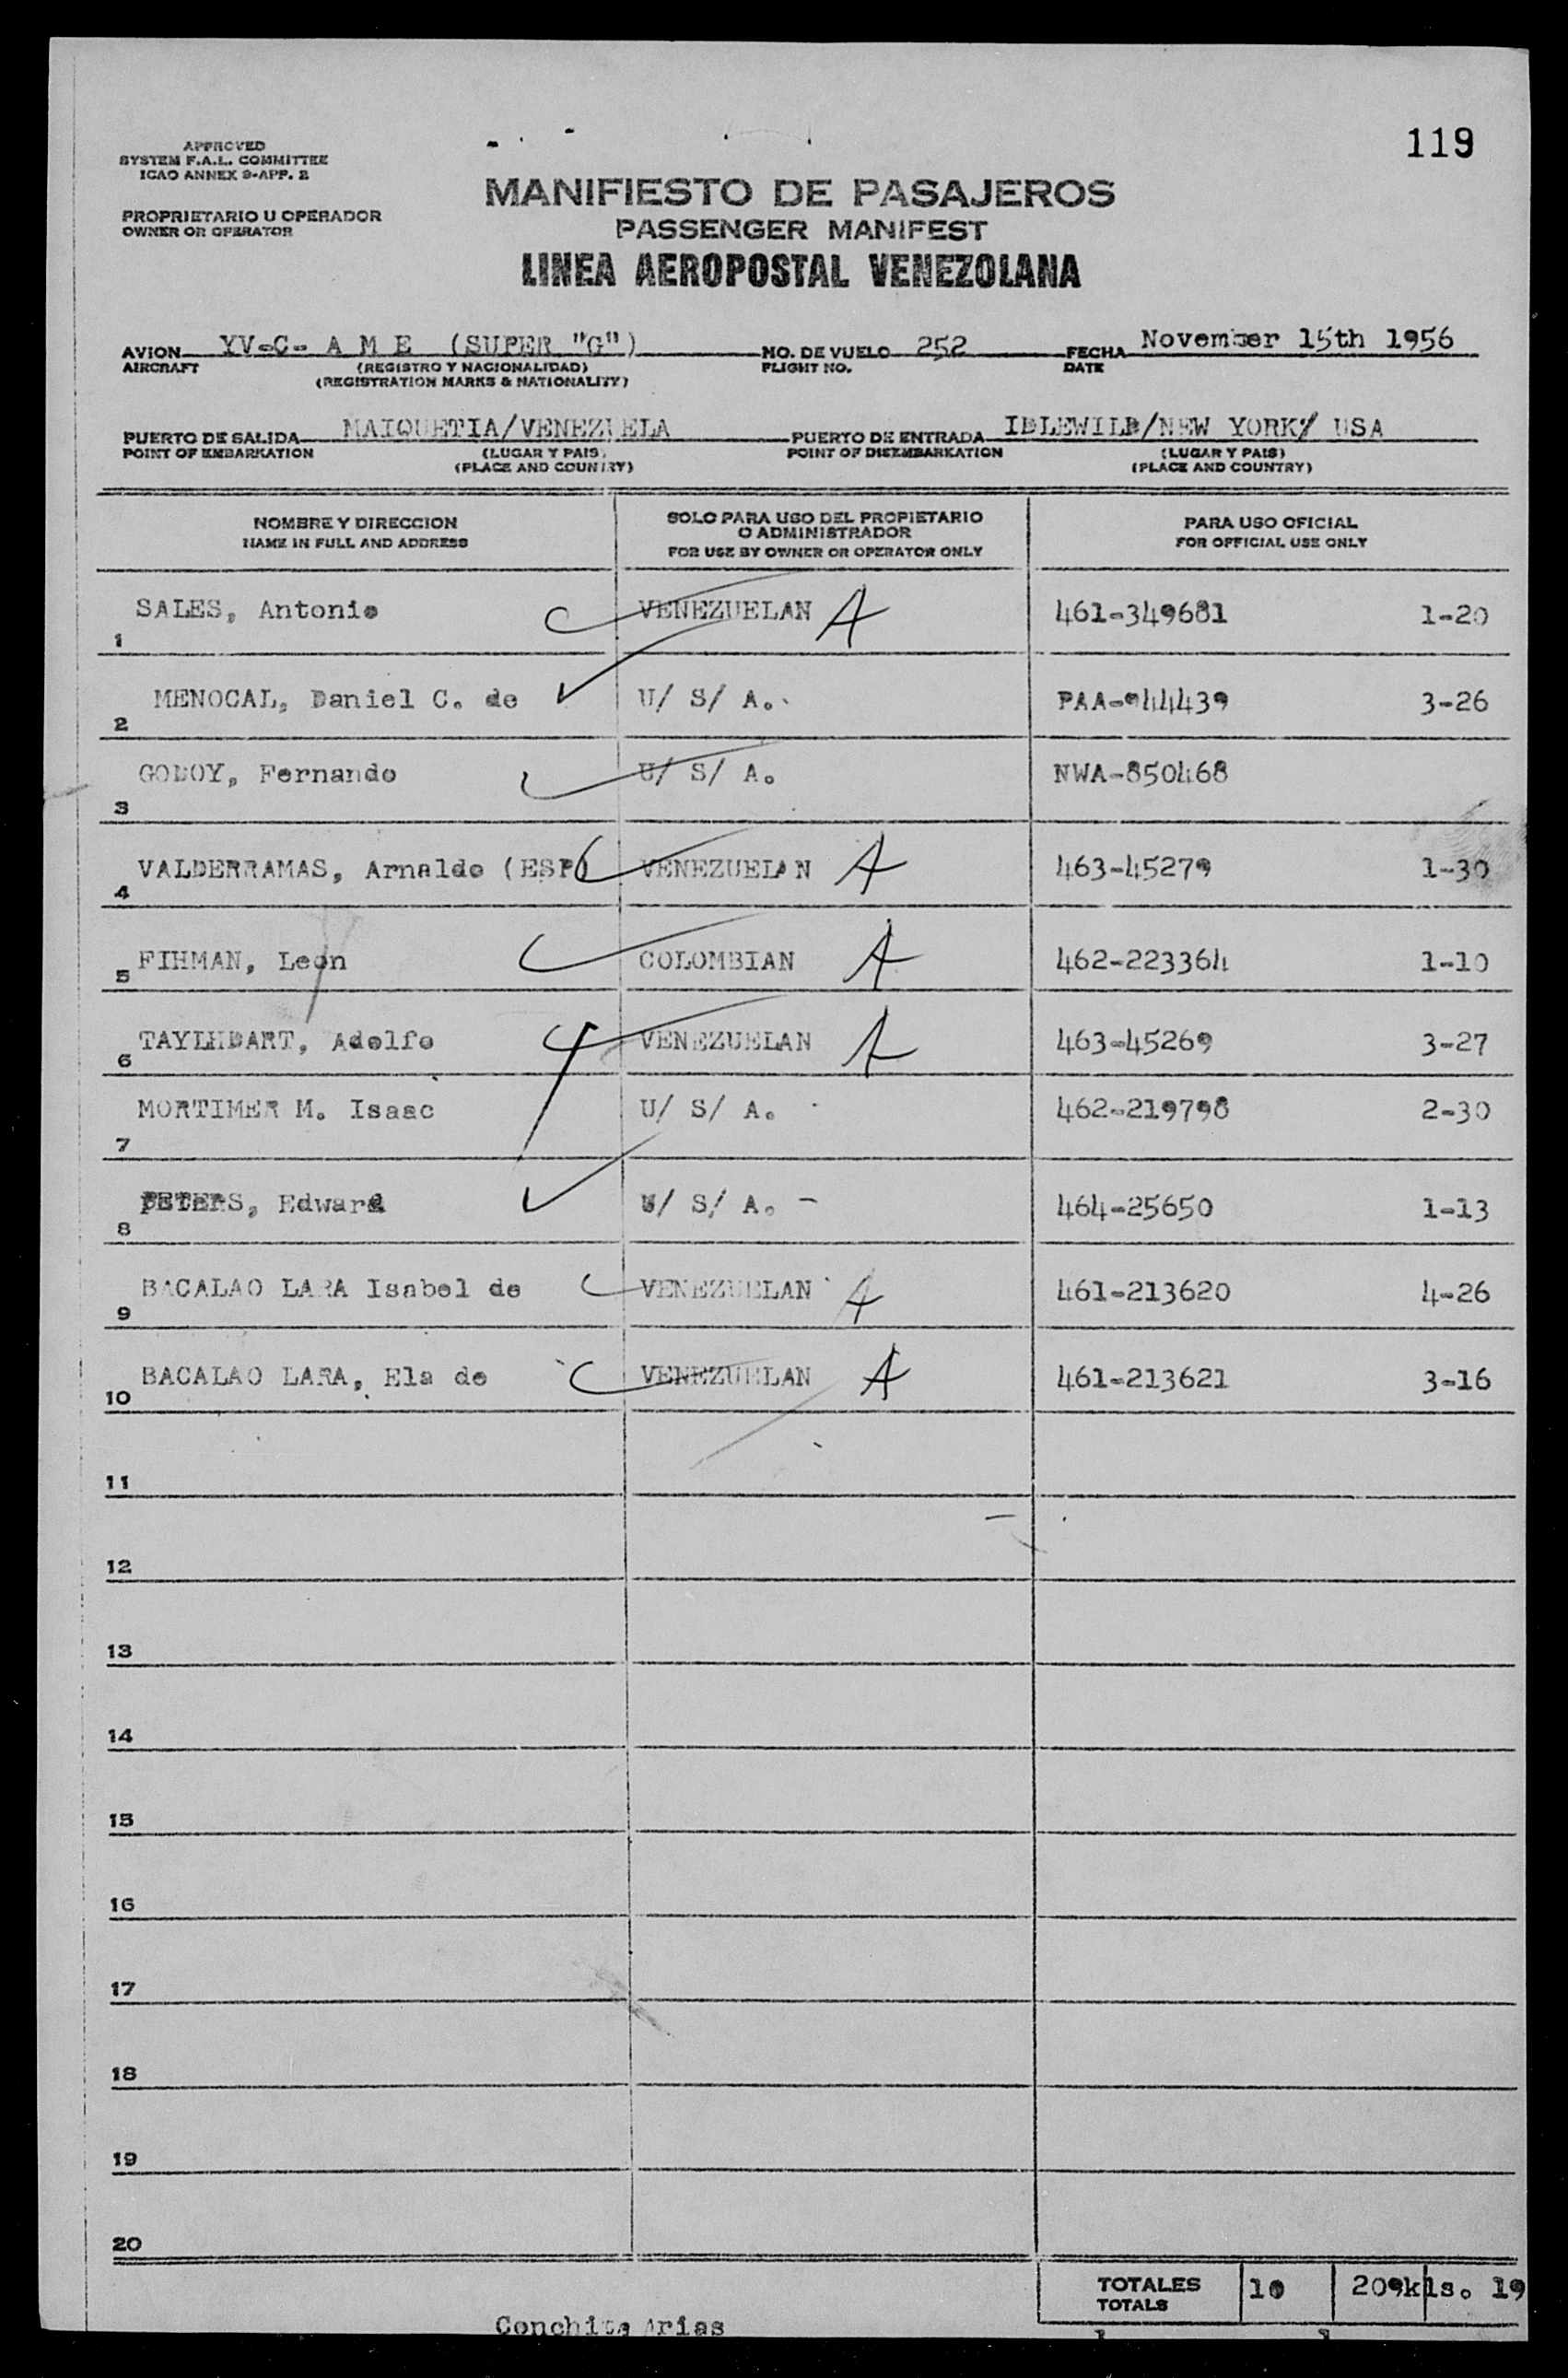 119
APPROVED
SYSTEM F.A.L. COMMITTEE
ICAO ANNEX 9-APP. 2
PROPRIETARIO U OPERADOR
OWNER OR OPERATOR
MANIFIESTO DE PASAJEROS
PASSENGER MANIFEST
LINEA AEROPOSTAL VENEZOLANA
AVION YV-C- A M E (SUPER "G") NO. DE VUELO 252 FECHA November 15th 1956
AIRCRAFT (REGISTRO Y NACIONALIDAD) FLIGHT NO. DATE
(REGISTRATION MARKS & NATIONALITY)
PUERTO DE SALIDA MAIQUETIA/VENEZUELA PUERTO DE ENTRADA IDLEWILD/NEW YORK/ USA
POINT OF EMBARKATION (LUGAR Y PAIS) POINT OF DISEMBARKATION (LUGAR Y PAIS)
(PLACE AND COUNTRY) (PLACE AND COUNTRY)
NOMBRE Y DIRECCION SOLO PARA USO DEL PROPIETARIO O ADMINISTRADOR PARA USO OFICIAL
NAME IN FULL AND ADDRESS FOR USE BY OWNER OR OPERATOR ONLY FOR OFFICIAL USE ONLY
1 SALES, Antonio VENEZUELAN A 461-349681 1-20
2 MENOCAL, Daniel C. de U/ S/ A. PAA-944439 3-26
3 GODOY, Fernando U/ S/ A. NWA-850468
4 VALDERRAMAS, Arnaldo (ESP) VENEZUELAN A 463-45279 1-30
5 FIHMAN, Leon COLOMBIAN A 462-223364 1-10
6 TAYLHDART, Adolfo VENEZUELAN A 463-45269 3-27
7 MORTIMER M. Isaac U/ S/ A. 462-219798 2-30
8 PETERS, Edward U/ S/ A. - 464-25650 1-13
9 BACALAO LARA Isabel de VENEZUELAN A 461-213620 4-26
10 BACALAO LARA, Ela de VENEZUELAN A 461-213621 3-16
11
12
13
14
15
16
17
18
19
20
TOTALES 10 209kls. 19
TOTALS
Conchita Arias